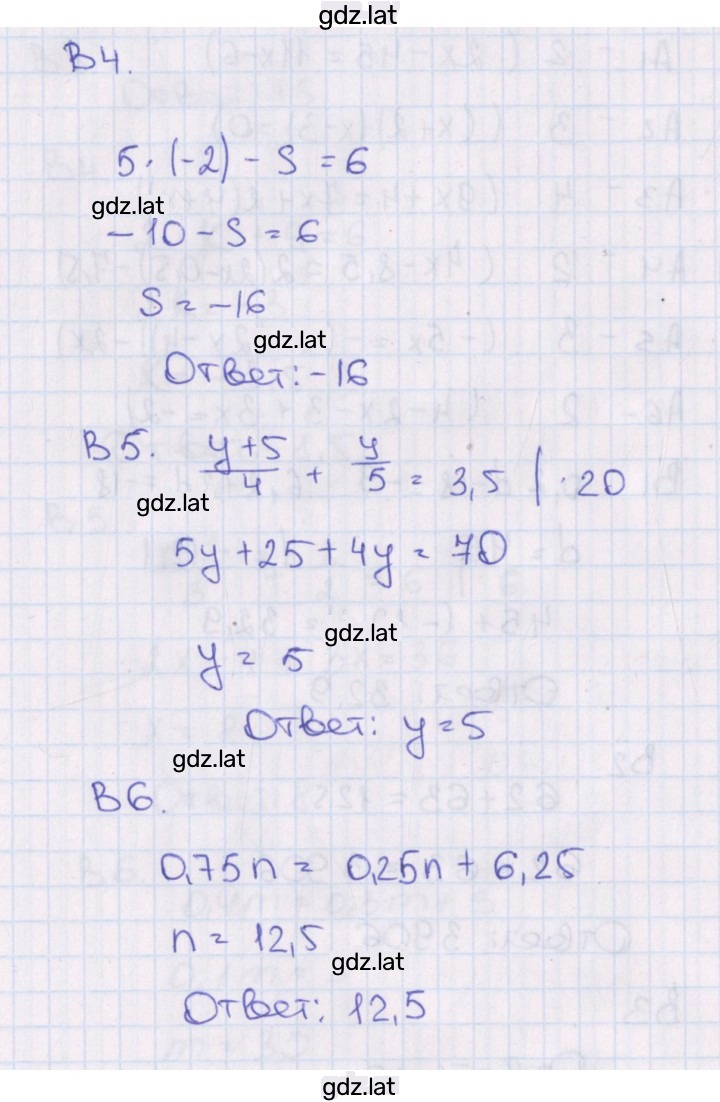 gdz.lat
В4.
5 · (-2) - S = 6
gdz.lat
-10 - S = 6
S = -16
gdz.lat
Ответ: -16
В5. (y+5)/4 + y/5 = 3,5 | · 20
gdz.lat
5y + 25 + 4y = 70
gdz.lat
y = 5
Ответ: y = 5
gdz.lat
В6.
0,75n = 0,25n + 6,25
n = 12,5
gdz.lat
Ответ: 12,5
gdz.lat